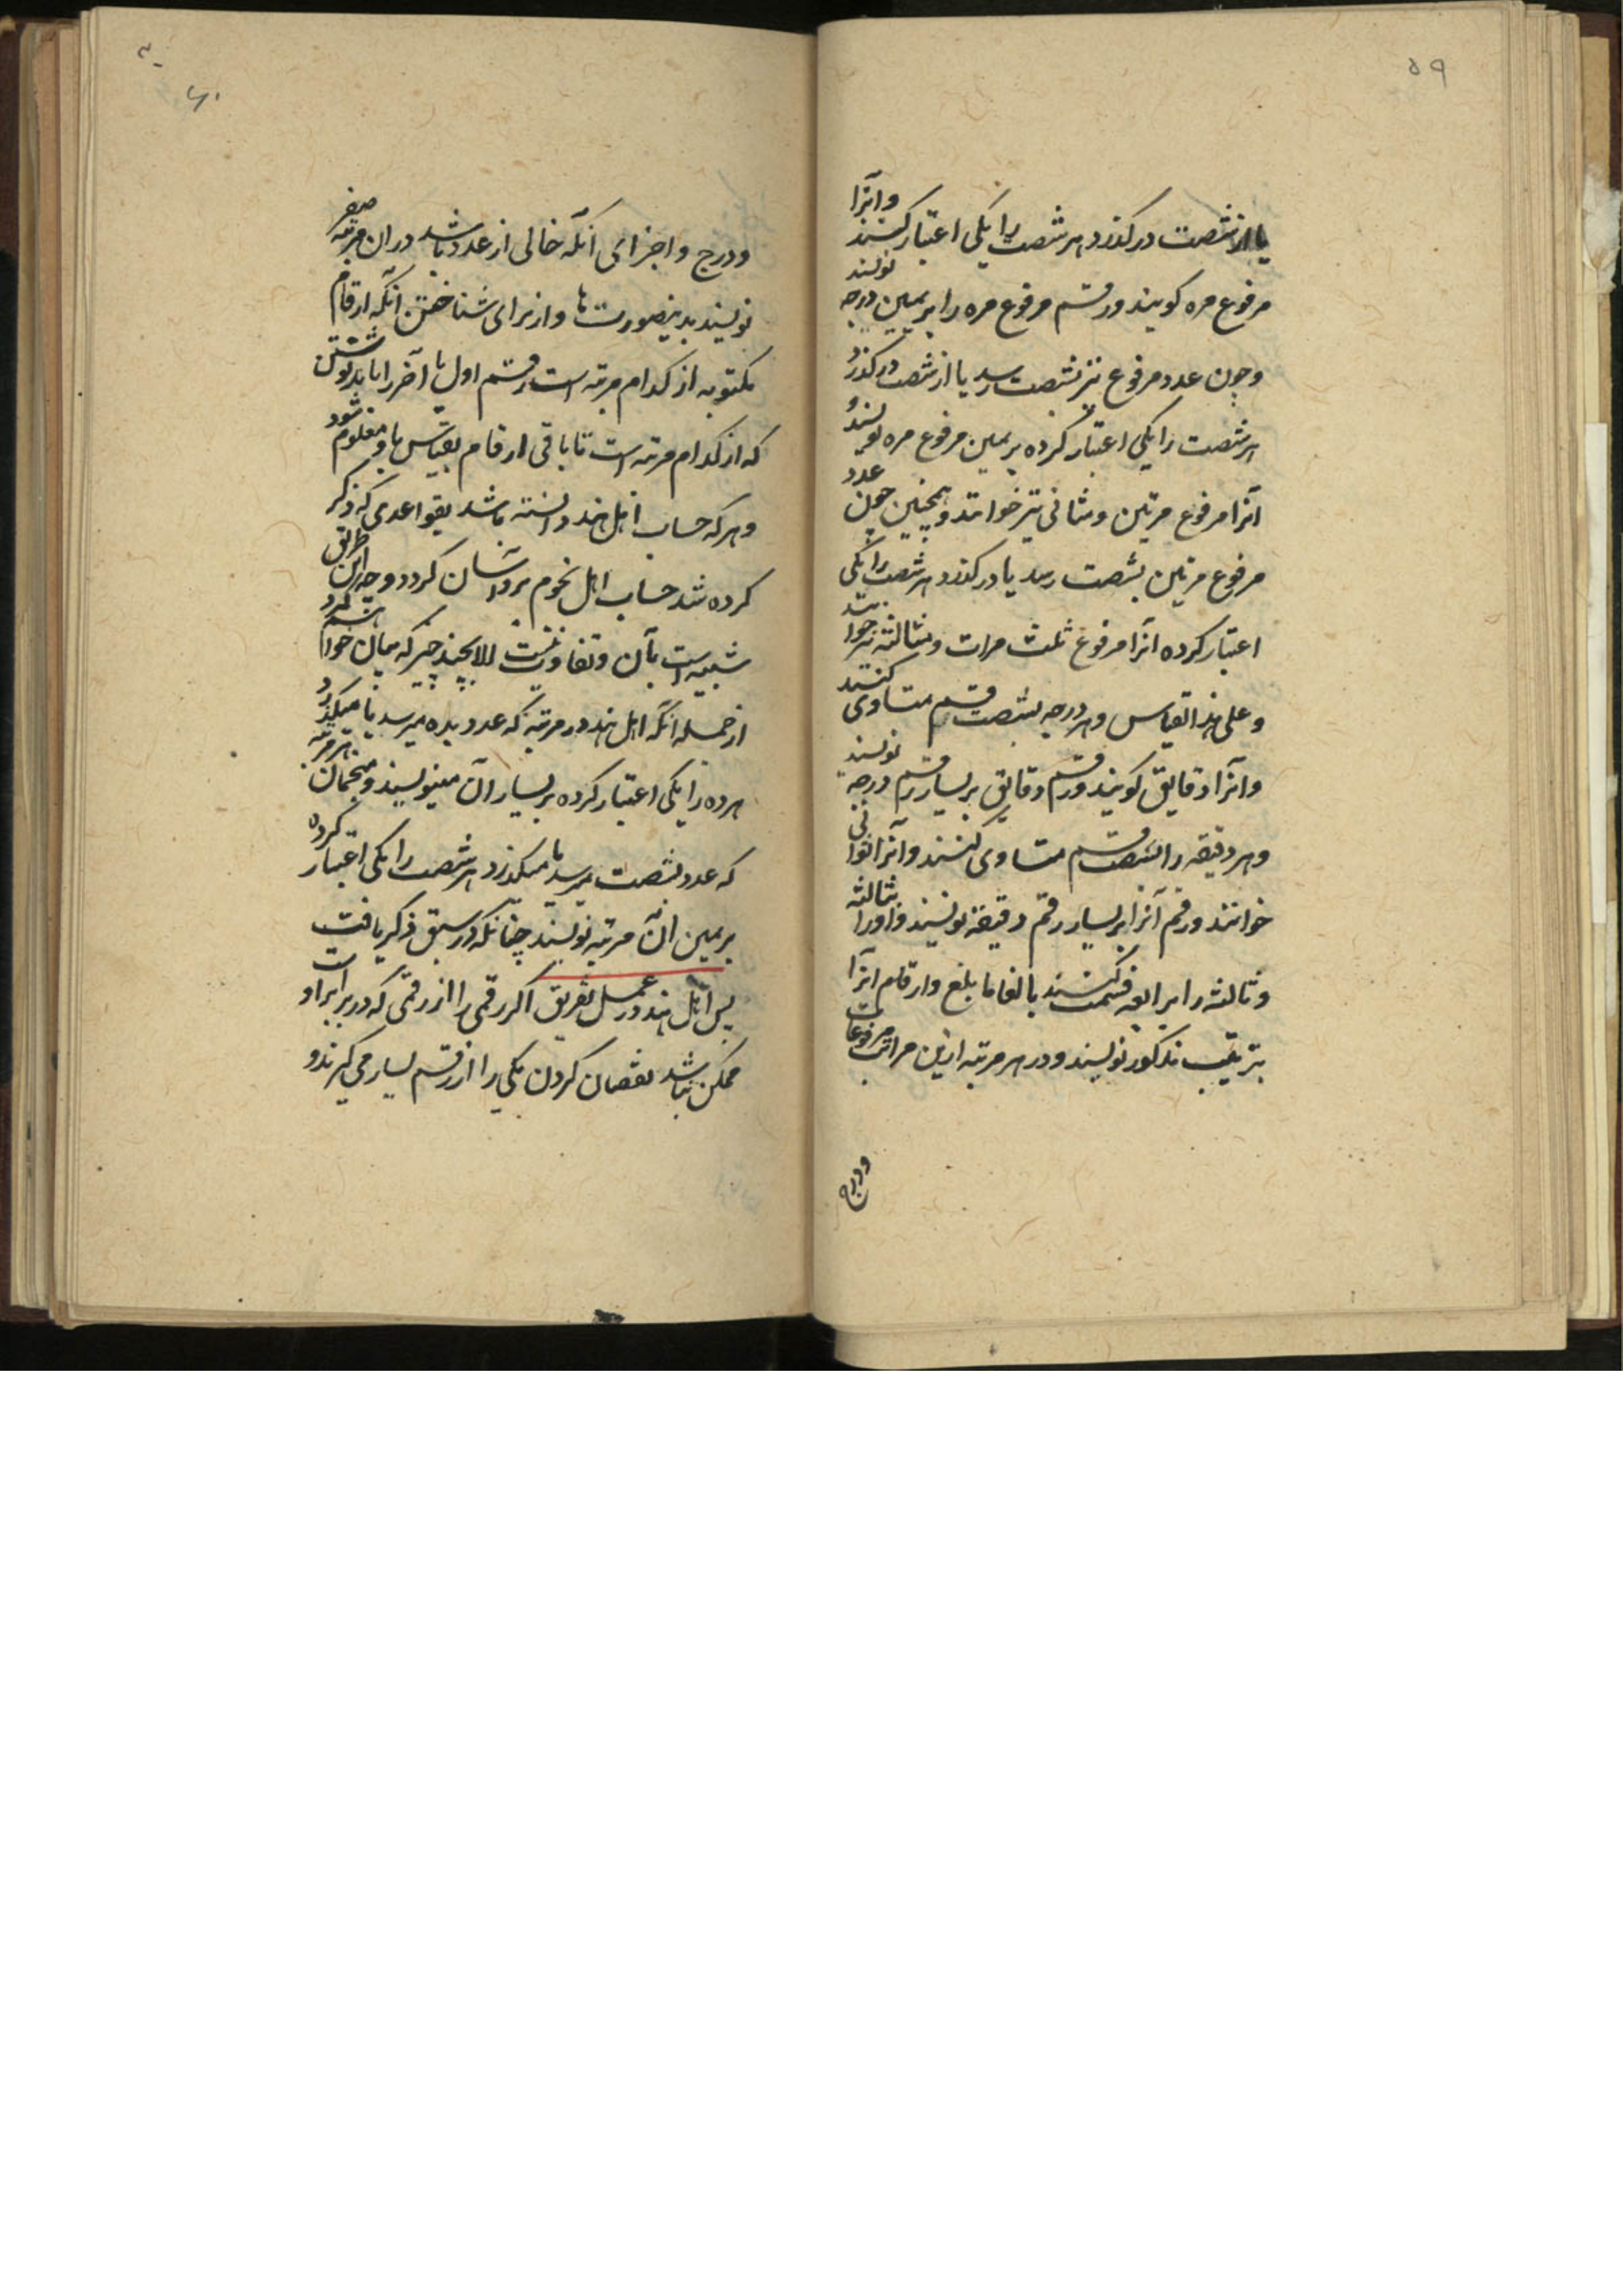 ۵۹
یا از شصت درکذرد هر شصت را یکی اعتبار کنند و آنرا
مرفوع مره کویند و رقم مرفوع مره را بر یمین درجه نویسند
و چون عدد مرفوع نیز بشصت رسد یا از شصت درکذرد
هر شصت را یکی اعتبار کرده بر یمین مرفوع مره نویسند و
آنرا مرفوع مرتین و مثانی نیز خوانند و همچنین چون عدد
مرفوع مرتین بشصت رسد یا درکذرد هر شصت را یکی
اعتبار کرده آنرا مرفوع ثلث مرات و مثالثه نیز خوانند
و علی هذا القیاس و هر درجه بشصت قسم متساوی کنند
و آنرا دقایق کویند و رقم دقایق بر یسار رقم درجه نویسند
و هر دقیقه را بشصت قسم متساوی کنند و آنرا ثوانی
خوانند و رقم آنرا بر یسار رقم دقیقه نویسند و او را بثالثه
و ثالثه را برابعه قسمت کنند بالغا ما بلغ و ارقام آنرا
بترتیب مذکور نویسند و در هر مرتبه ازین مراتب مرفوعات
و درج
۶۰
و درج و اجزای آنکه خالی از عدد باشد در آن مرتبه صفر
نویسند بدینصورت ها و از برای شناختن آنکه ارقام
مکتوبه از کدام مرتبه است رقم اول یا آخر را باید نوشتن
که از کدام مرتبه است تا باقی ارقام بقیاس باو معلوم شود
و هر که حساب اهل هند دانسته باشد بقواعدی که ذکر
کرده شد حساب اهل نجوم برو آسان کردد و چه این طریق
شبیه است بآن و تفاوت نیست الا بچند چیز که میان خواهم کرد
از جمله آنکه اهل هند در مرتبه که عدد بده میرسد یا میکذرد
هر ده را یکی اعتبار کرده بر یسار آن مینویسند و منجمان هر مرتبه
که عدد بشصت میرسد یا میکذرد هر شصت را یکی اعتبار کرده
بر یمین آن مرتبه نویسند چنانکه در سبق ذکر یافت
پس اهل هند در عمل تفریق اکر رقمی را از رقمی که در برابر او است
ممکن نباشد نقصان کردن یکی را از رقم یسار می کیرند و